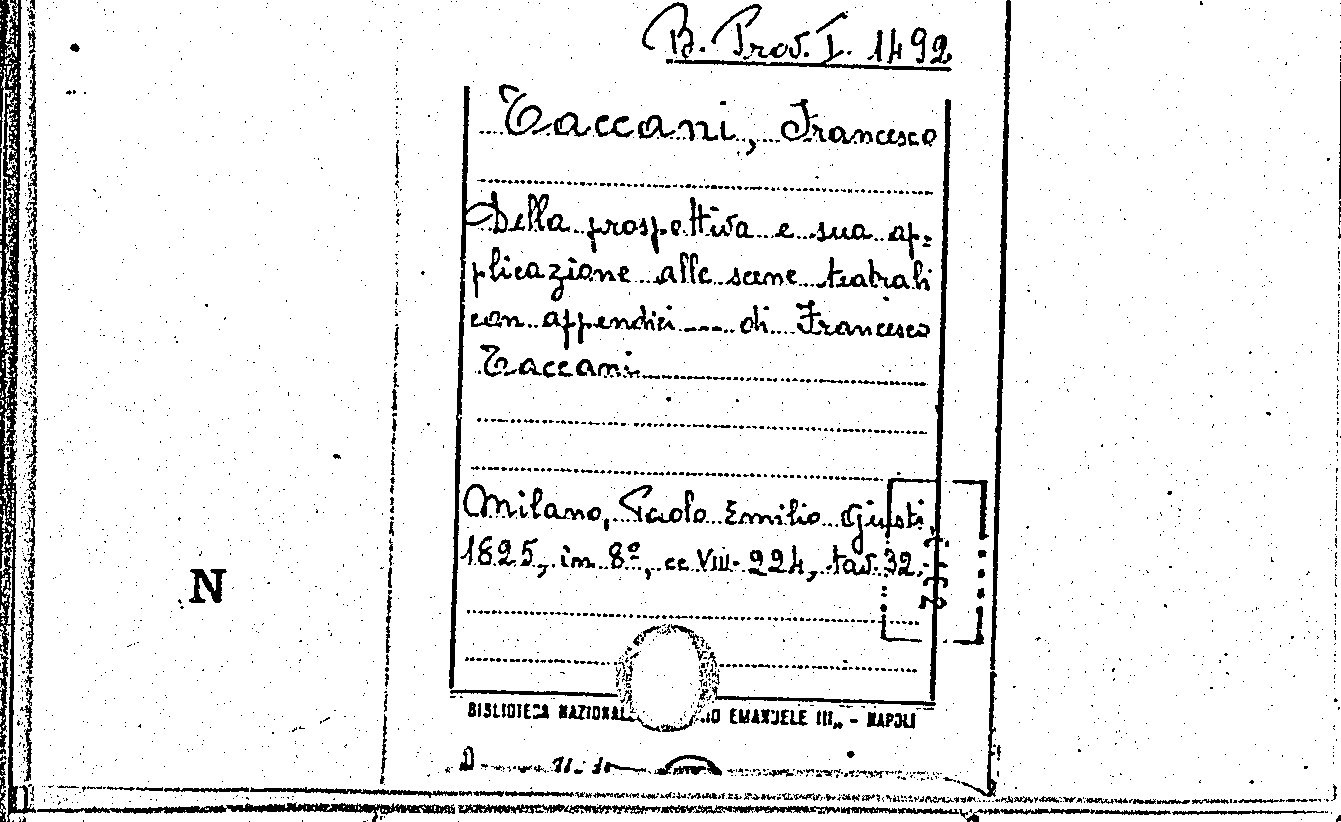 B. Prov. I. 1492
Taccani, Francesco
Della prospettiva e sua ap=
plicazione alle scene teatrali
con appendici ... di Francesco
Taccani
Milano, Paolo Emilio Giusti,
1825, in 8º, cc VIII-224, tav. 32.
N
BIBLIOTECA NAZIONAL IO EMANUELE III„ - NAPOLI